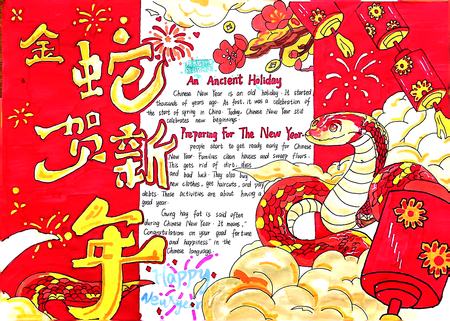 金蛇
贺新
年
An Ancient Holiday
Chinese New Year is an old holiday. It started
thousands of years ago. At first, it was a celebration of
the start of spring in China. Today, Chinese New Year still
celebrates new beginnings.
Preparing For The New Year.
people start to get ready early for Chinese
New Year. Families clean houses and sweep floors.
This gets rid of dirt,
and bad luck. They also buy
new clothes, get haircuts, and pay
debts. These activities are about having a
good year.
Gung hay fat is said often
during Chinese New Year. It means,"
Congratulations on your good fortune
and happiness" in the
Chinese language.
Happy
New Year